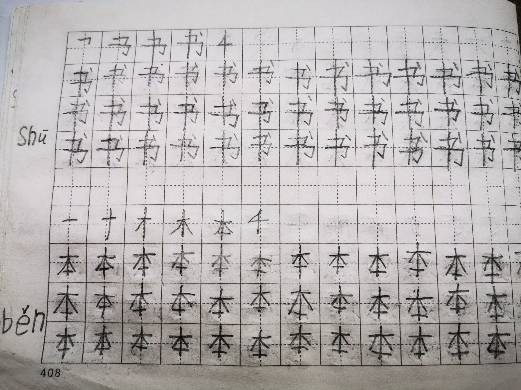 书 书 书 书 书 书 书 书 书 书 书 书 书
书 书 书 书 书 书 书 书 书 书 书 书 书
shū 书 书 书 书 书 书 书 书 书 书 书 书 书
本 本 本 本 本 本 本 本 本 本 本 本
本 本 本 本 本 本 本 本 本 本 本 本
běn 本 本 本 本 本 本 本 本 本 本 本 本
408